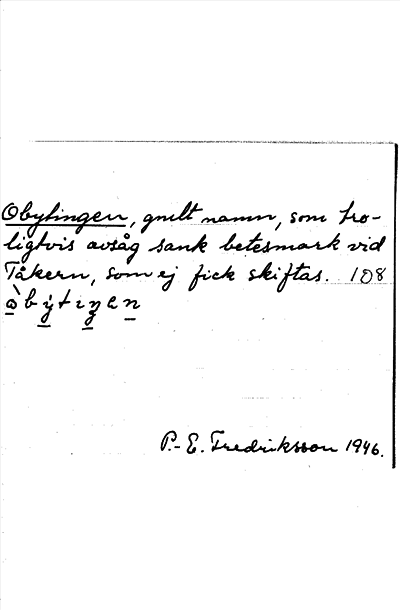 Obytingen, gmlt namn, som tro-
ligtvis avsåg sank betesmark vid
Tåkern, som ej fick skiftas. 108
òbýtıŋen
P.-E. Fredriksson 1946.